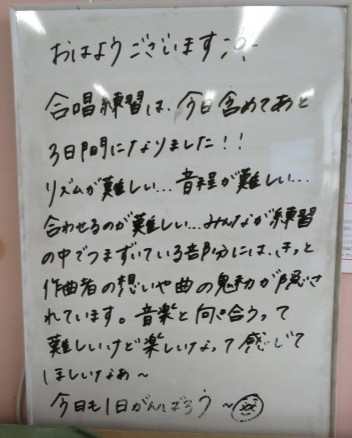 おはようございます
合唱練習は、今日含めてあと
3日間になりました!!
リズムが難しい... 音程が難しい...
合わせるのが難しい...みんなが練習
の中でつまずいている部分には、きっと
作曲者の想いや曲の魅力が隠さ
れています。音楽と向き合うって
難しいけど楽しいなって感じて
ほしいなぁ~
今日も1日がんばろう~